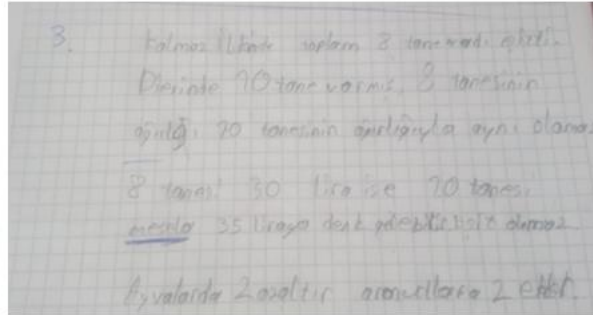 3. Kalmaz ilkinde toplam 8 tane vardı
Dierinde 10 tane varmış. 8 tanesinin
ağırlığı 10 tanesinin ağırlığıyla aynı olamaz
8 tanesi 30 lira ise 10 tanesi
mesela 35 liraya denk gelebilir eşit olamaz
Ayvalarda 2 azaltır armutlara 2 ekler.